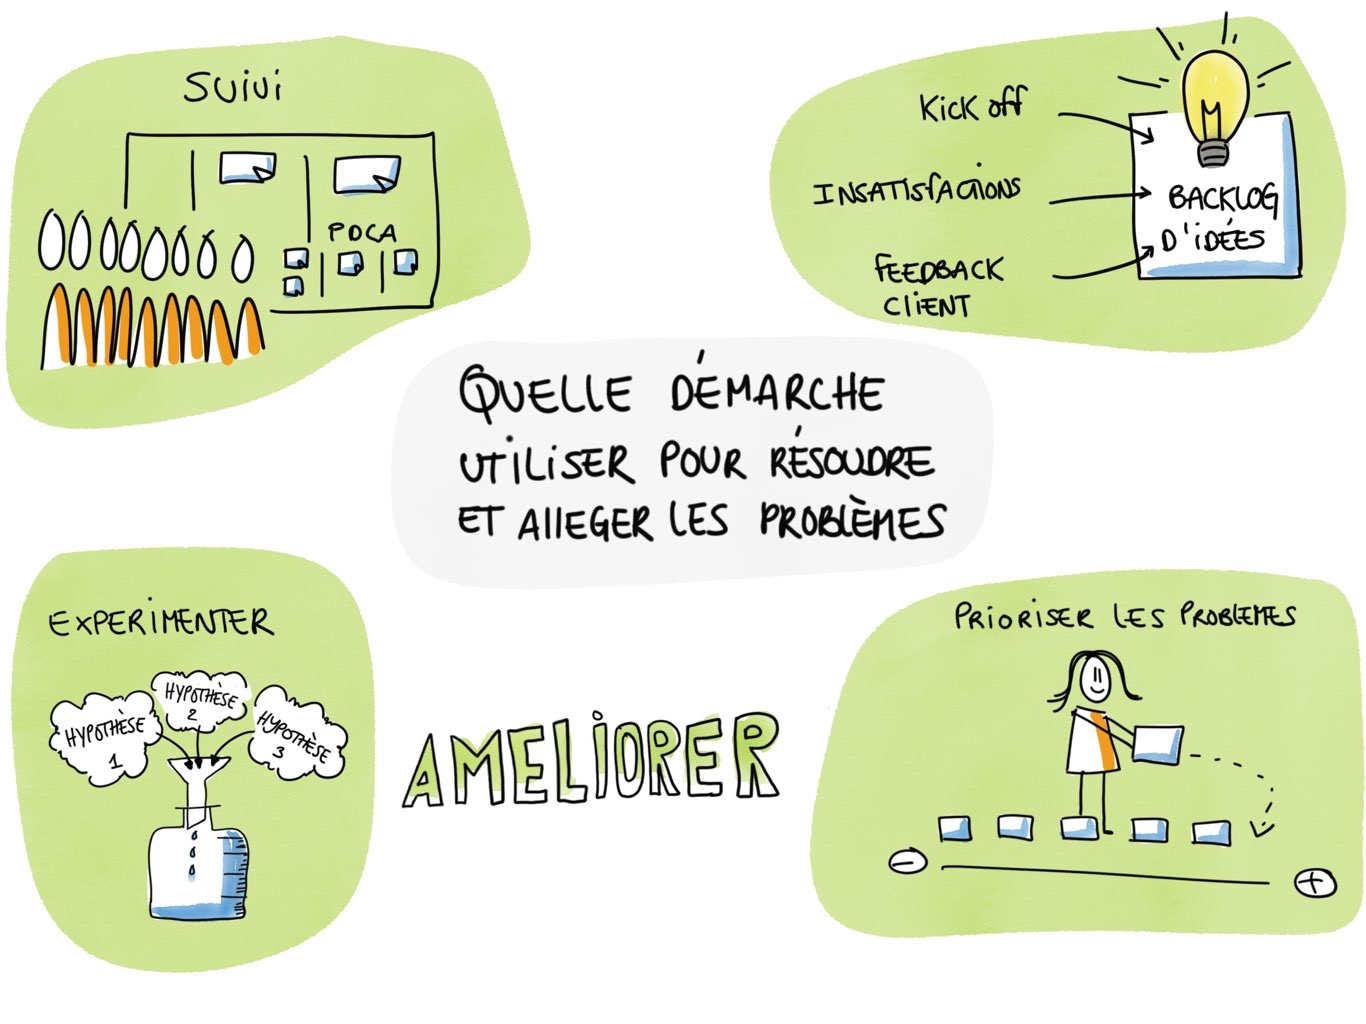 Suivi
PDCA
Kick off
INSATISfACTIONS
fEEDBACK
CLiENT
BACKLOG
D'iDÉES
QUELLE DÉMARCHE
UTiLiSER POUR RÉSOUDRE
ET AllEGER LES PROBLÈMES
EXPERiMENTER
HYPOTHÈSE
1
HYPOTHÈSE
2
HYPOTHÈSE
3
AMELiORER
PRiORiSER LES PROBLEMES
-
+